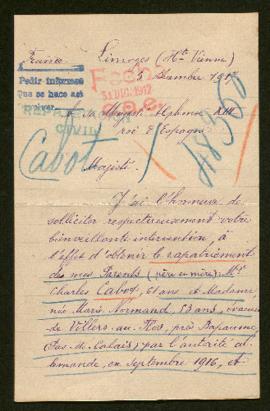 France
Limoges (Hte Vienne)
5 Décembre 1917
Pedir informes
Que se hace así
31 DIC. 1912
REPA
CIVIL
Cabot
A sa Majesté Alphonse XIII
roi d'Espagne
Majesté
J'ai l'honneur de
solliciter respectueusement votre
bienveillante intervention, à
l'effet d'obtenir le rapatriement
des mes Parents (père et mère) Mr
Charles Cabot, 61 ans et Madame
née Marie Normand, 53 ans, évacués
de Villers-au-Flos, près Bapaume,
Pas-de-Calais) par l'autorité al-
lemande, en septembre 1916, et